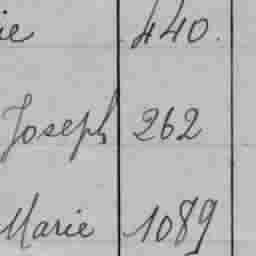 ie 440.
Joseph 262
Marie 1089